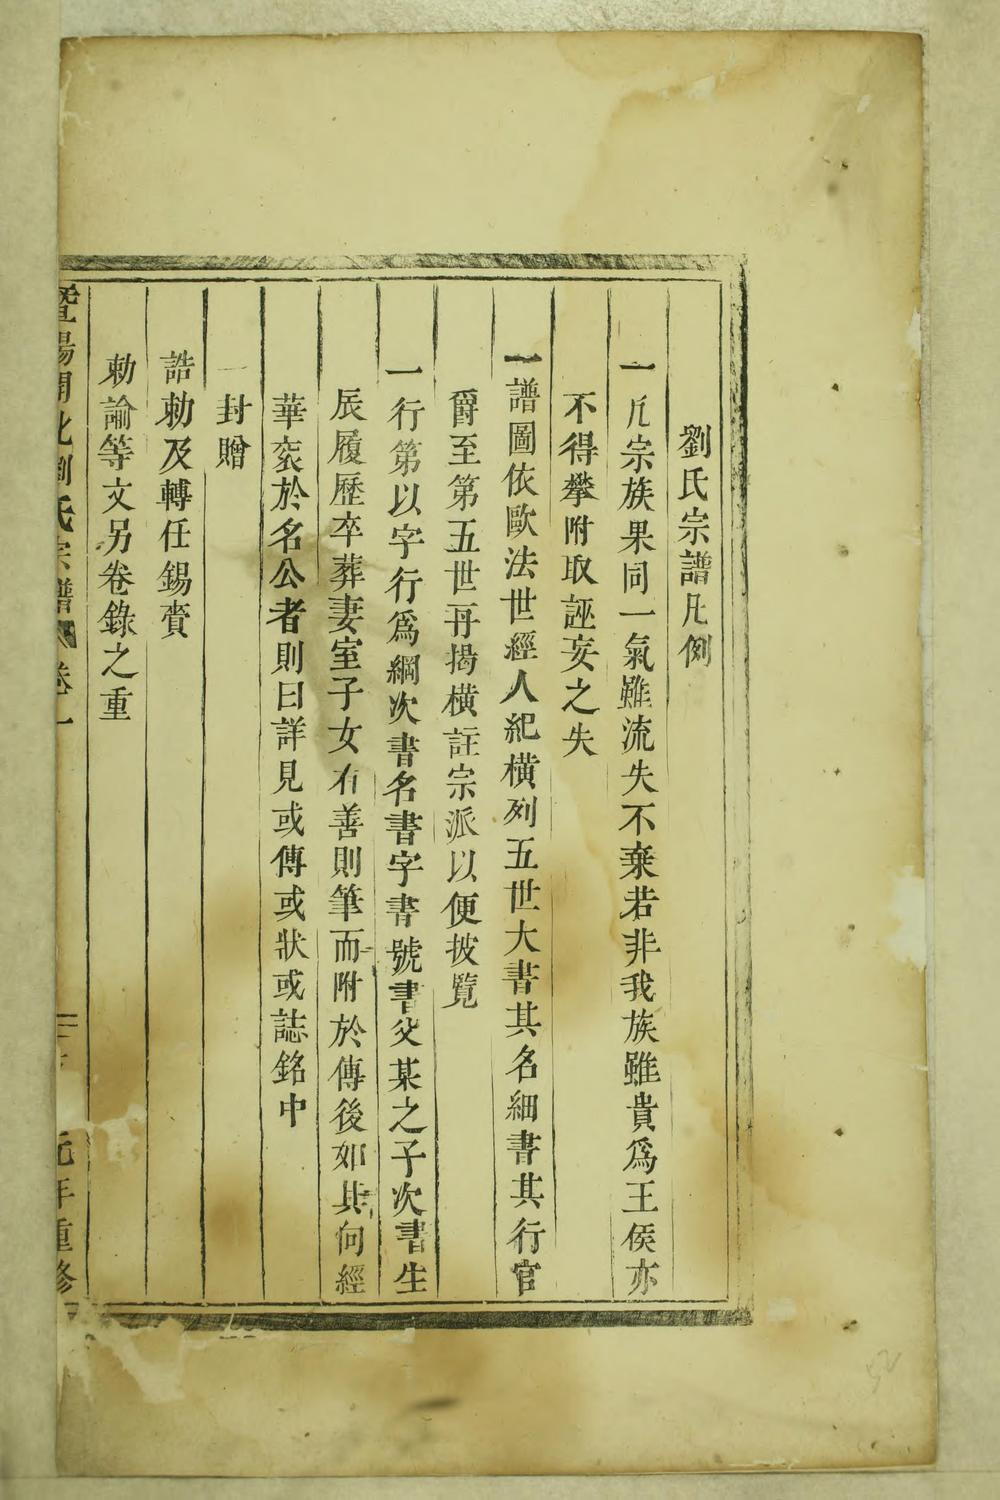 劉氏宗譜凡例
一凡宗族果同一氣雖流失不棄若非我族雖貴爲王侯亦
不得攀附取誣妄之失
一譜圖依歐法世經人紀橫列五世大書其名細書其行官
爵至第五世再揭橫註宗派以便披覽
一行第以字行爲綱次書名書字書號書父某之子次書生
辰履歷卒葬妻室子女有善則筆而附於傳後如其向經
華衮於名公者則曰詳見或傳或狀或誌銘中
一封贈
誥勅及轉任錫賚
勅諭等文另卷錄之重
暨陽開化劉氏宗譜 卷一
元年重修
52